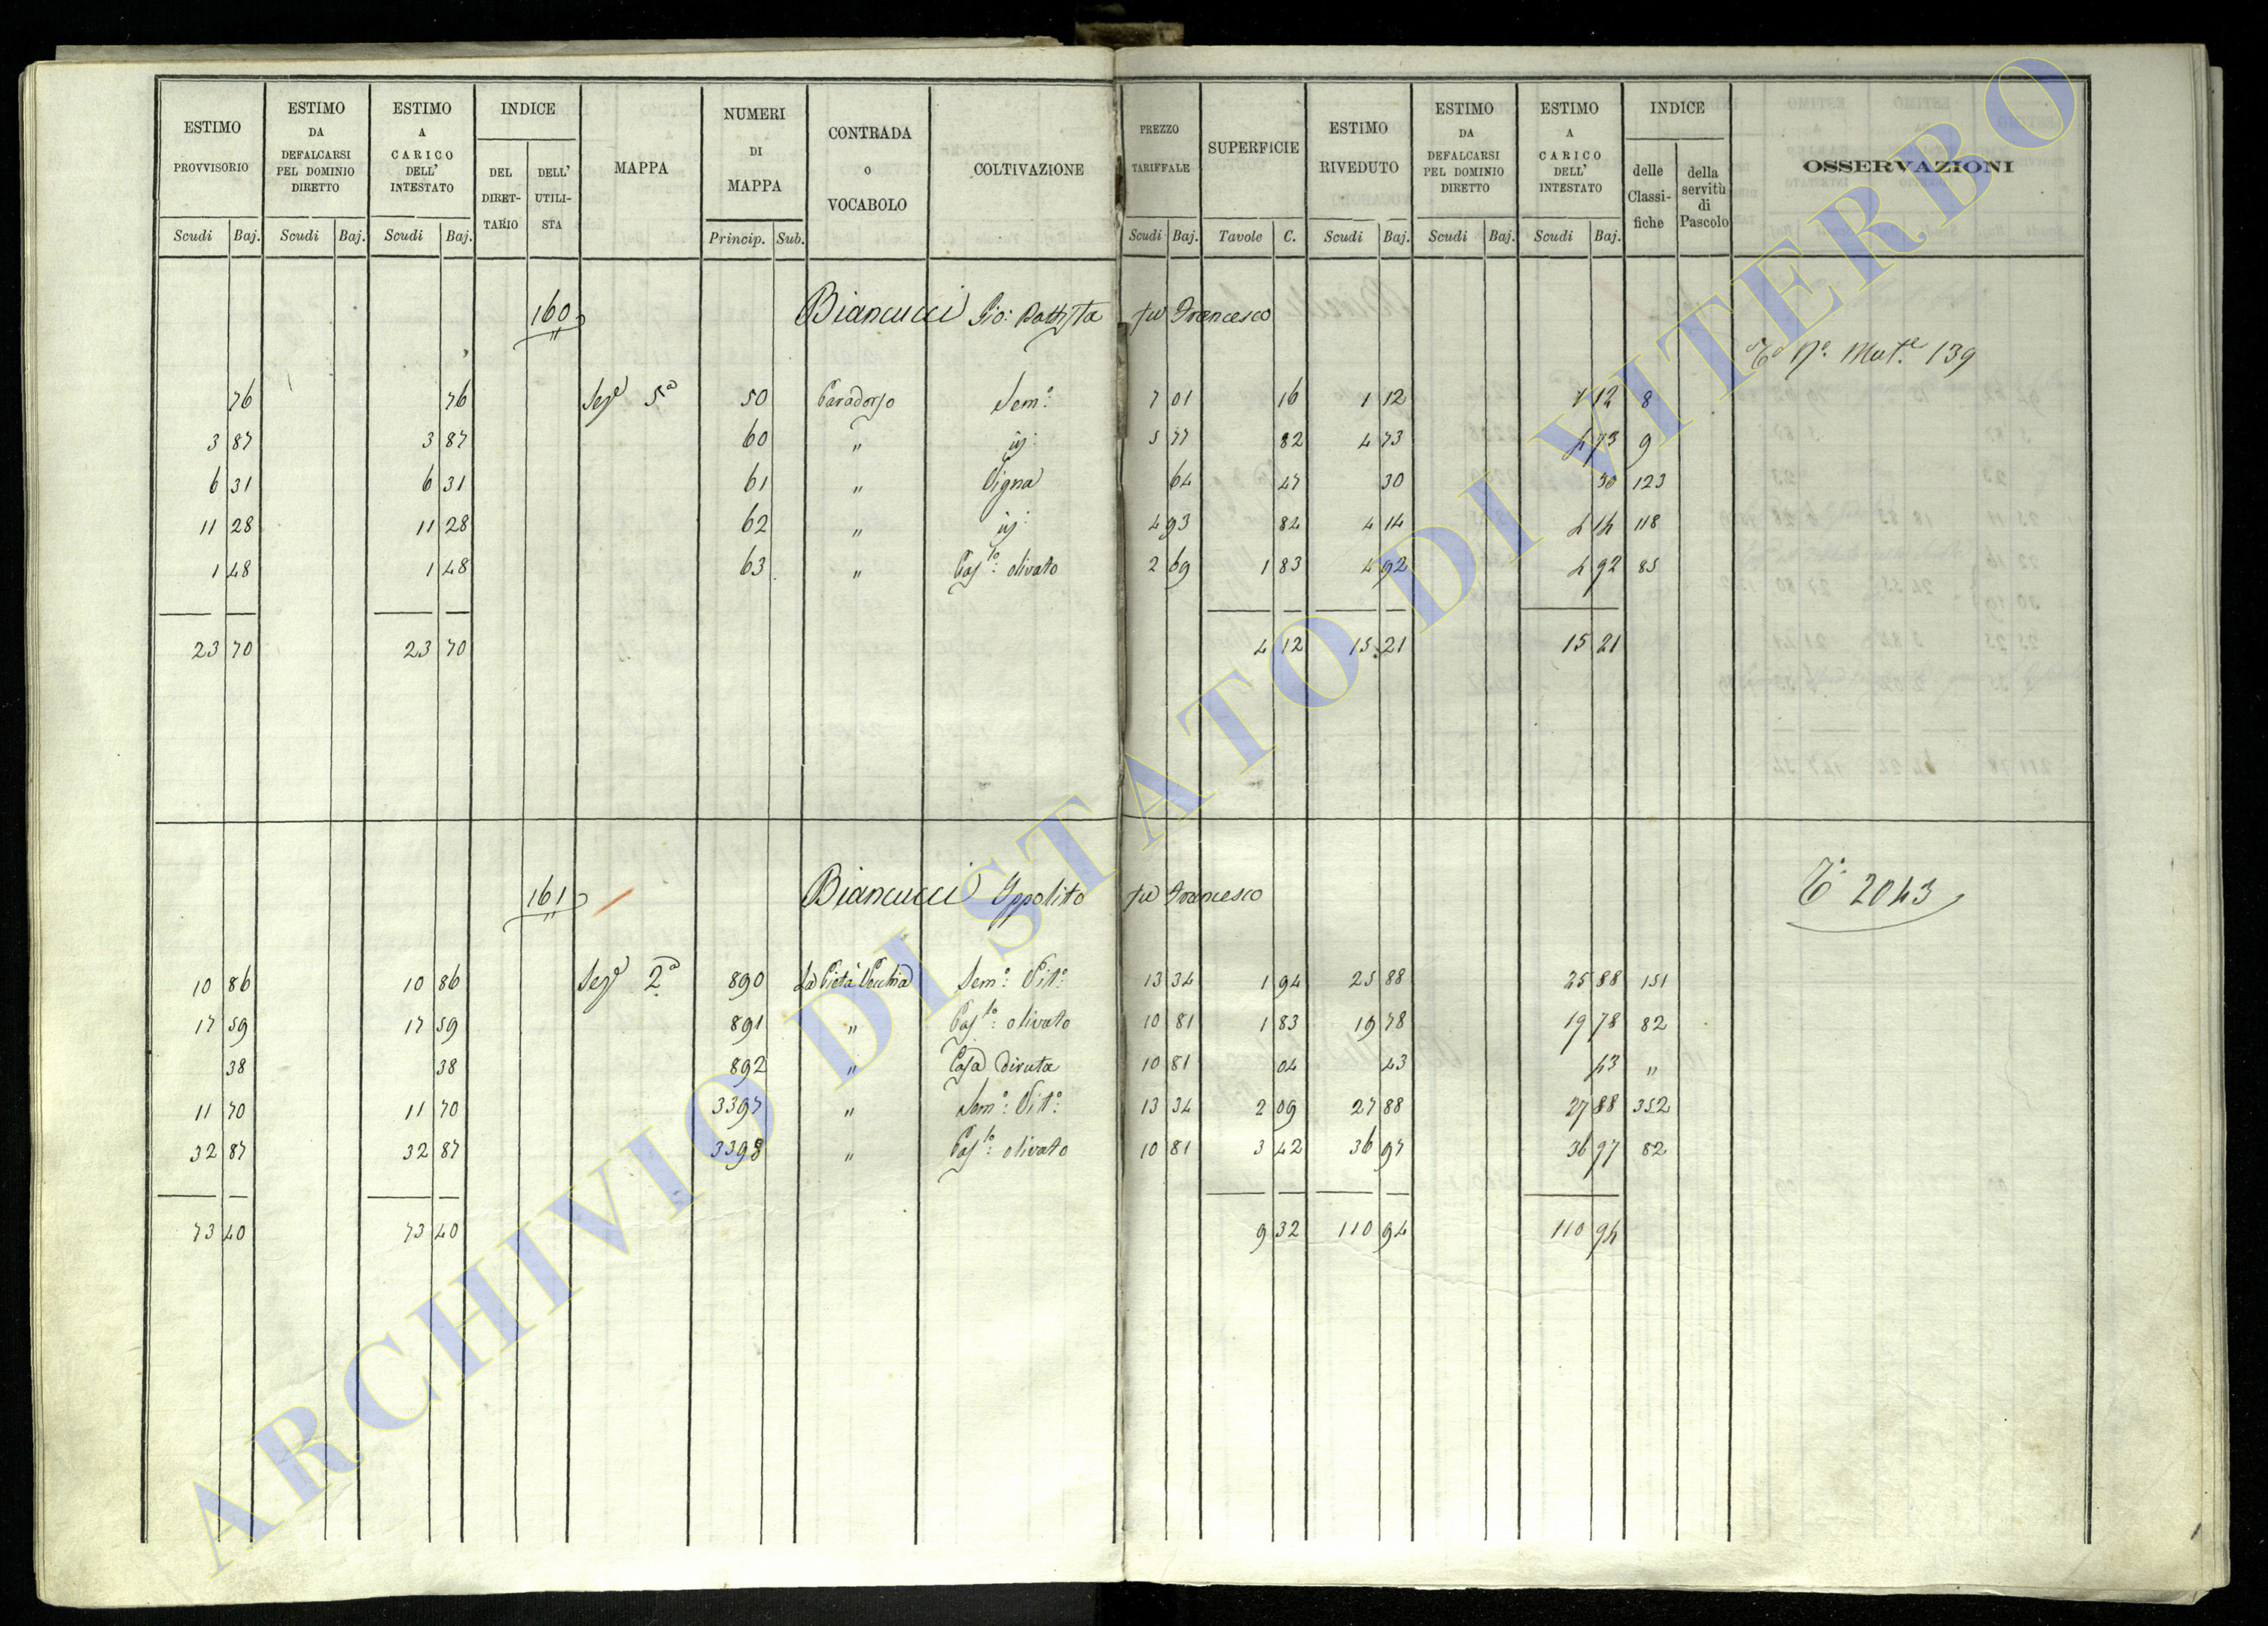 ESTIMO PROVVISORIO
ESTIMO DA DEFALCARSI PEL DOMINIO DIRETTO
ESTIMO A CARICO DELL' INTESTATO
INDICE
DEL DIRET- TARIO
DELL' UTILI- STA
MAPPA
NUMERI DI MAPPA
CONTRADA o VOCABOLO
COLTIVAZIONE
PREZZO TARIFFALE
SUPERFICIE
ESTIMO RIVEDUTO
ESTIMO DA DEFALCARSI PEL DOMINIO DIRETTO
ESTIMO A CARICO DELL' INTESTATO
INDICE
delle Classi- fiche
della servitù di Pascolo
OSSERVAZIONI
Scudi Baj. Scudi Baj. Scudi Baj. Princip. Sub. Scudi Baj. Tavole C. Scudi Baj. Scudi Baj. Scudi Baj.
160 Biancucci Gio: Battista fu Francesco
Nº. Mat.e 139
76 76 Sez.e 5ª 50 Sem.º 7 01 16 1 12 1 12 8
3 87 3 87 60 " 5 77 82 4 73 4 73 9
6 31 6 31 61 " Vigna 64 47 30 30 123
11 28 11 28 62 " 4 93 84 4 14 4 14 118
1 48 1 48 63 " Pas.to: olivato 2 69 1 83 4 92 4 92 85
23 70 23 70 4 12 15 21 15 21
161 Biancucci Ippolito fu Francesco 2043
10 86 10 86 Sez.e 2ª 890 La Pietà Vecchia Sem.º: Vit.º: 13 34 1 94 25 88 25 88 151
17 59 17 59 891 " Pas.to: olivato 10 81 1 83 19 78 19 78 82
38 38 892 " Casa diruta 10 81 04 43 43 "
11 70 11 70 3397 " Sem.º: Vit.º: 13 34 2 09 27 88 27 88 352
32 87 32 87 3398 " Pas.to: olivato 10 81 3 42 36 97 36 97 82
73 40 73 40 9 32 110 94 110 94
ARCHIVIO DI STATO DI VITERBO